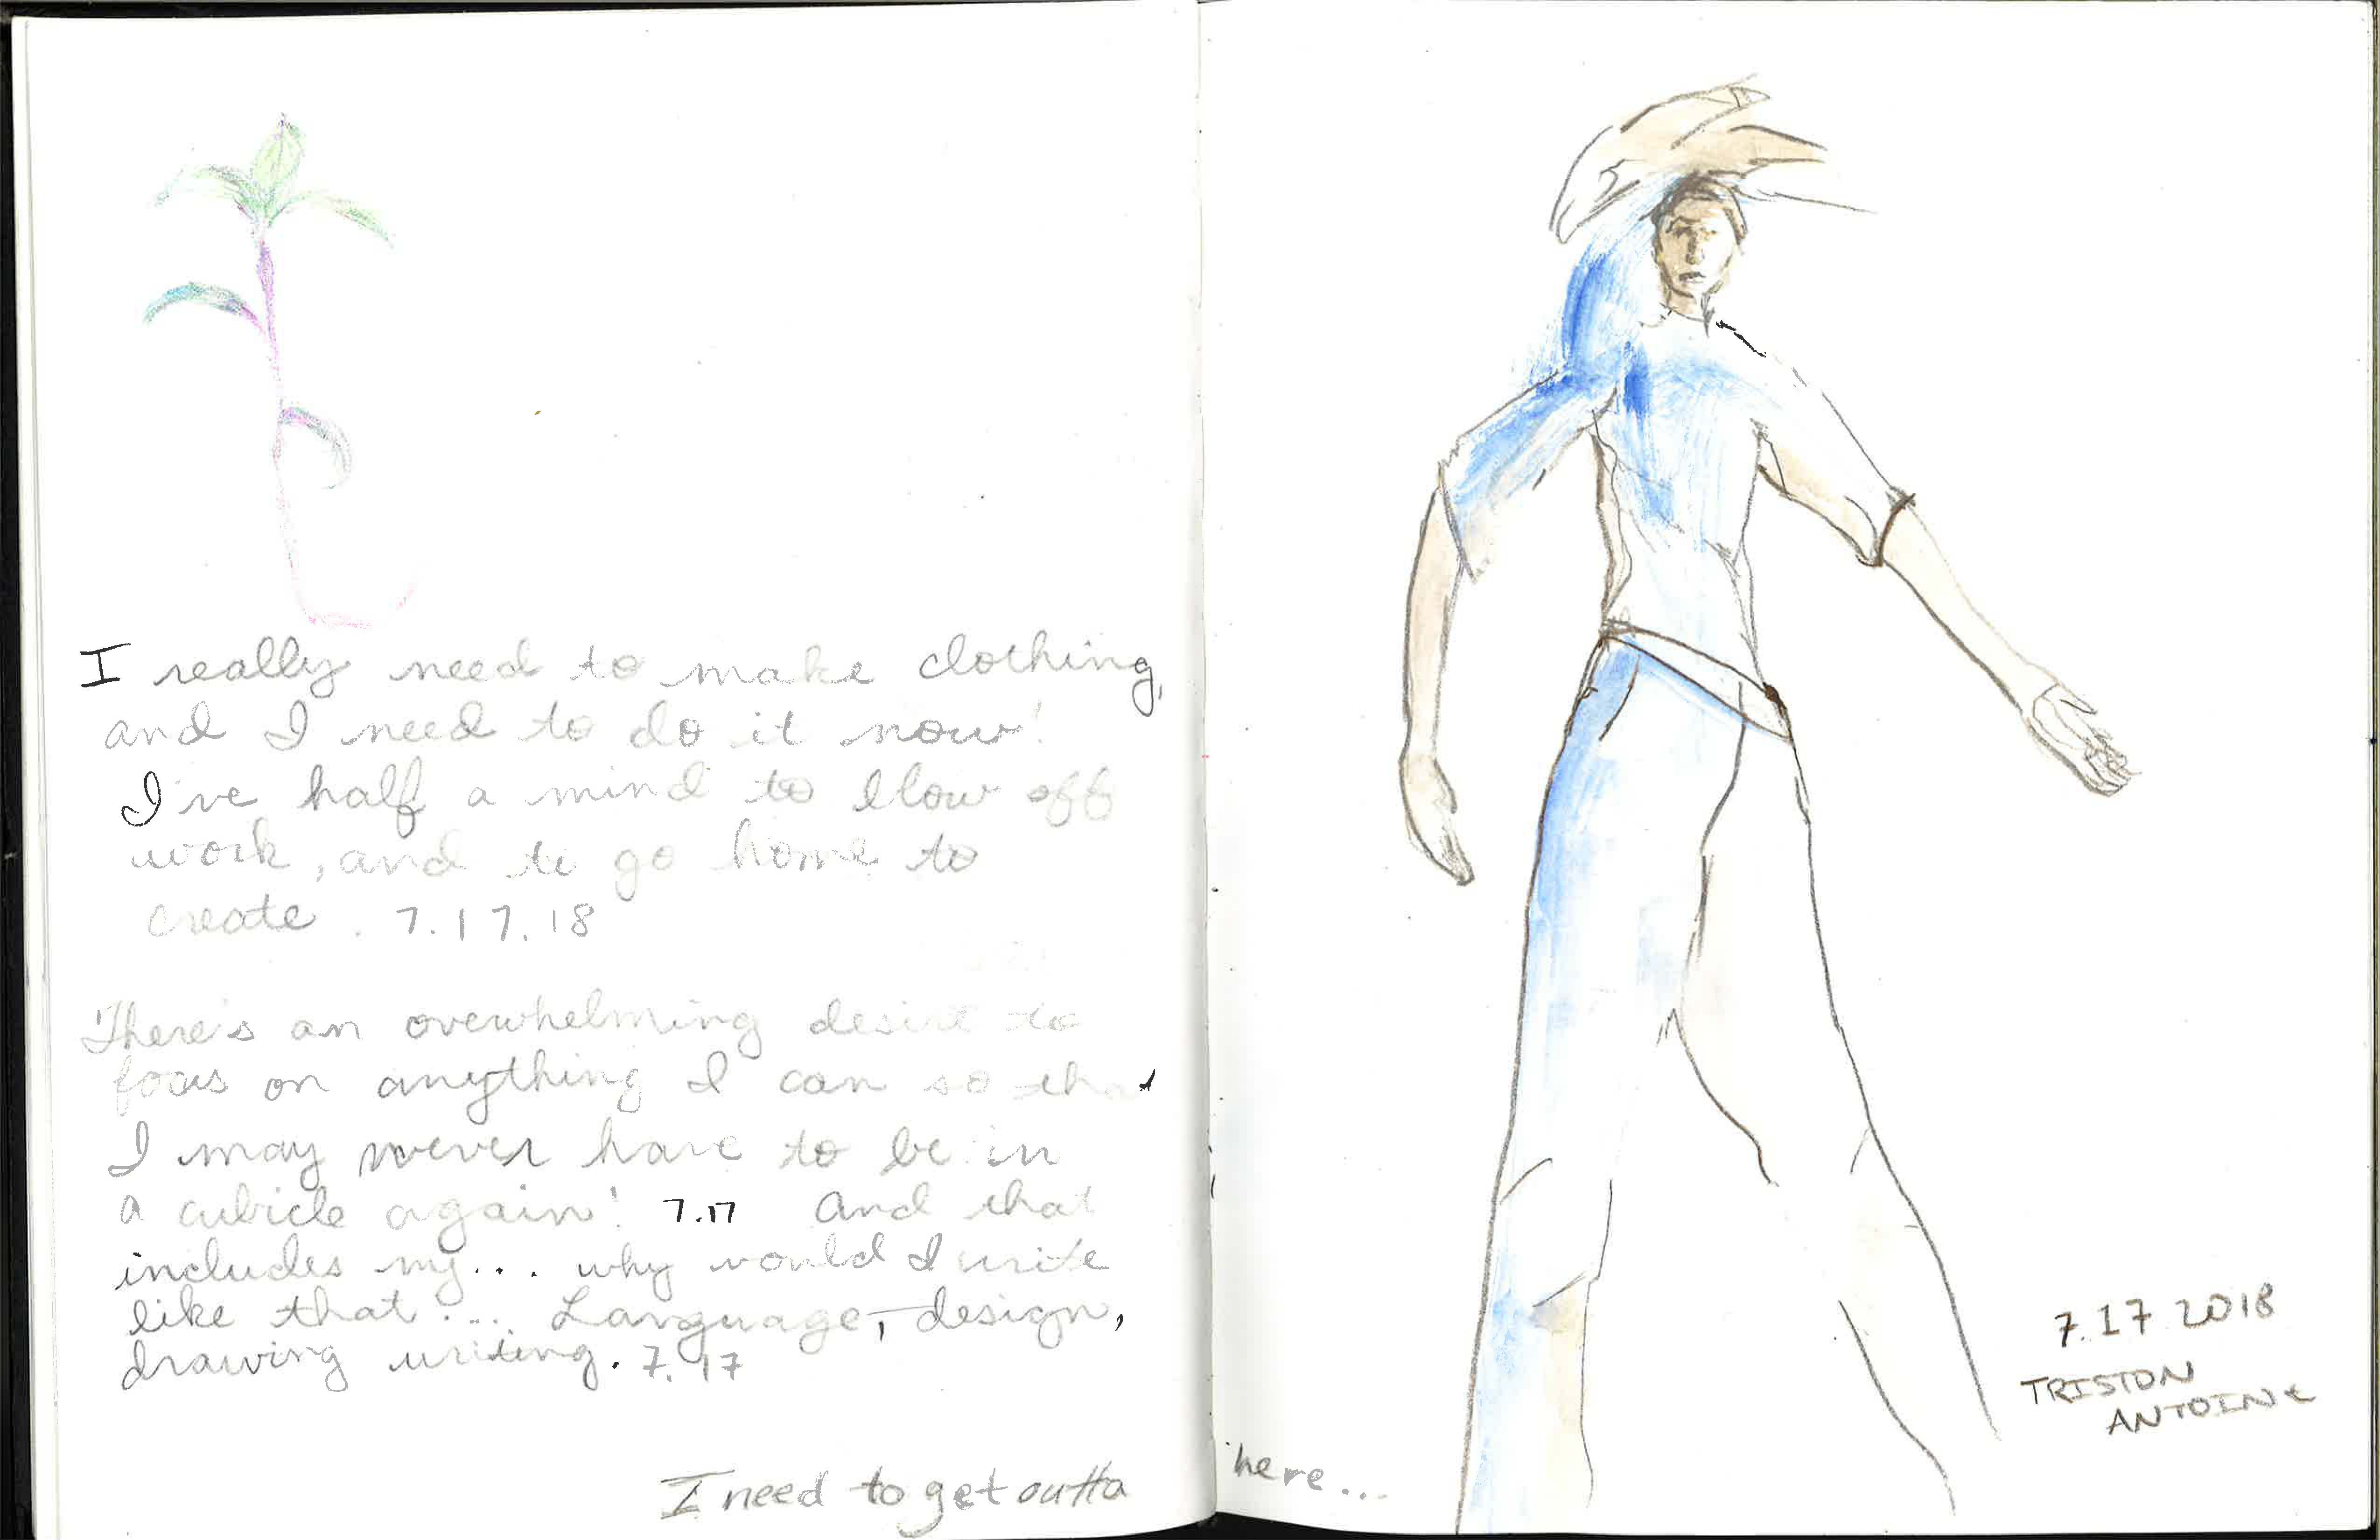 I really need to make clothing,
and I need to do it now!
I've half a mind to blow off
work, and to go home to
create. 7.17.18
There's an overwhelming desire to
focus on anything I can so that
I may never have to be in
a cubicle again! 7.17 And that
includes my... why would I write
like that... Language, design,
drawing writing. 7.17
I need to get outta here...
7.17 2018
TRISTON
ANTOINE